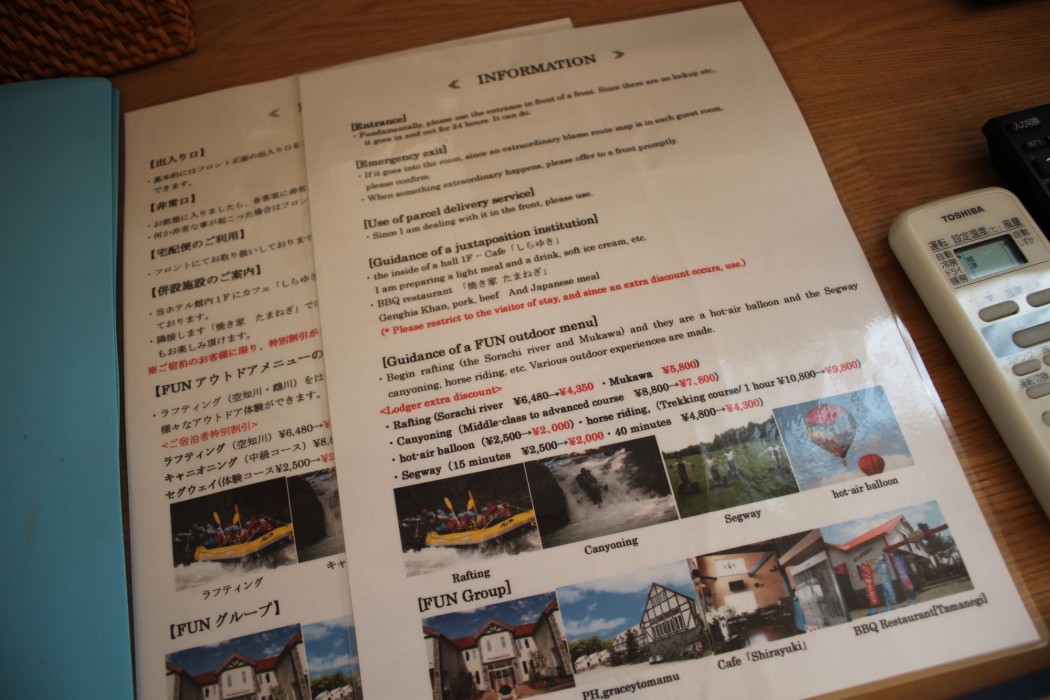 《 INFORMATION 》
[Entrance]
・Fundamentally, please use the entrance in front of a front. Since there are no lockup etc.,
it goes in and out for 24 hours. It can do.
[Emergency exit]
・If it goes into the room, since an extraordinary blame route map is in each guest room,
please confirm.
・When something extraordinary happens, please offer to a front promptly.
[Use of parcel delivery service]
・Since I am dealing with it in the front, please use.
[Guidance of a juxtaposition institution]
・the inside of a hall 1F – Cafe「しらゆき」
I am preparing a light meal and a drink, soft ice cream, etc.
・BBQ restaurant 「焼き家 たまねぎ」
Genghis Khan, pork, beef And Japanese meal
(* Please restrict to the visitor of stay, and since an extra discount occurs, use.)
[Guidance of a FUN outdoor menu]
・Begin rafting (the Sorachi river and Mukawa) and they are a hot-air balloon and the Segway
canyoning, horse riding, etc. Various outdoor experiences are made.
<Lodger extra discount>
・Rafting (Sorachi river ¥6,480→¥4,350 ・Mukawa ¥5,800)
・Canyoning (Middle-class to advanced course ¥8,800→¥7,800)
・hot-air balloon (¥2,500→¥2,000)・horse riding, (Trekking course/ 1 hour ¥10,800→¥9,800)
・Segway (15 minutes ¥2,500→¥2,000・40 minutes ¥4,800→¥4,300)
Rafting
Canyoning
Segway
hot-air balloon
[FUN Group]
PH,graceytomamu
Cafe「Shirayuki」
BBQ Restaurant[Tamanegi]
《
【出入り口】
・基本的にはフロント正面の出入り口を
できます。
【非常口】
・お部屋に入りましたら、各客室に非常
・何か非常な事が起こった場合はフロン
【宅配便のご利用】
・フロントにてお取り扱いしております
【併設施設のご案内】
・当ホテル館内1Fにカフェ「しらゆき
ております。
・隣接します「焼き家 たまねぎ」では
もお楽しみ頂けます。
※ご宿泊のお客様に限り、特別割引が
【FUN アウトドアメニューの
・ラフティング（空知川・鵡川）をは
様々なアウトドア体験ができます。
<ご宿泊者特別割引>
ラフティング（空知川）¥6,480→¥
キャニオニング（中級コース）¥8,
セグウェイ(体験コース¥2,500→¥2
ラフティング
キャ
【FUN グループ】
TOSHIBA
運転 設定温度(℃) 風量
自動
冷房
ドライ
暖房
自動
しずか
入力切換